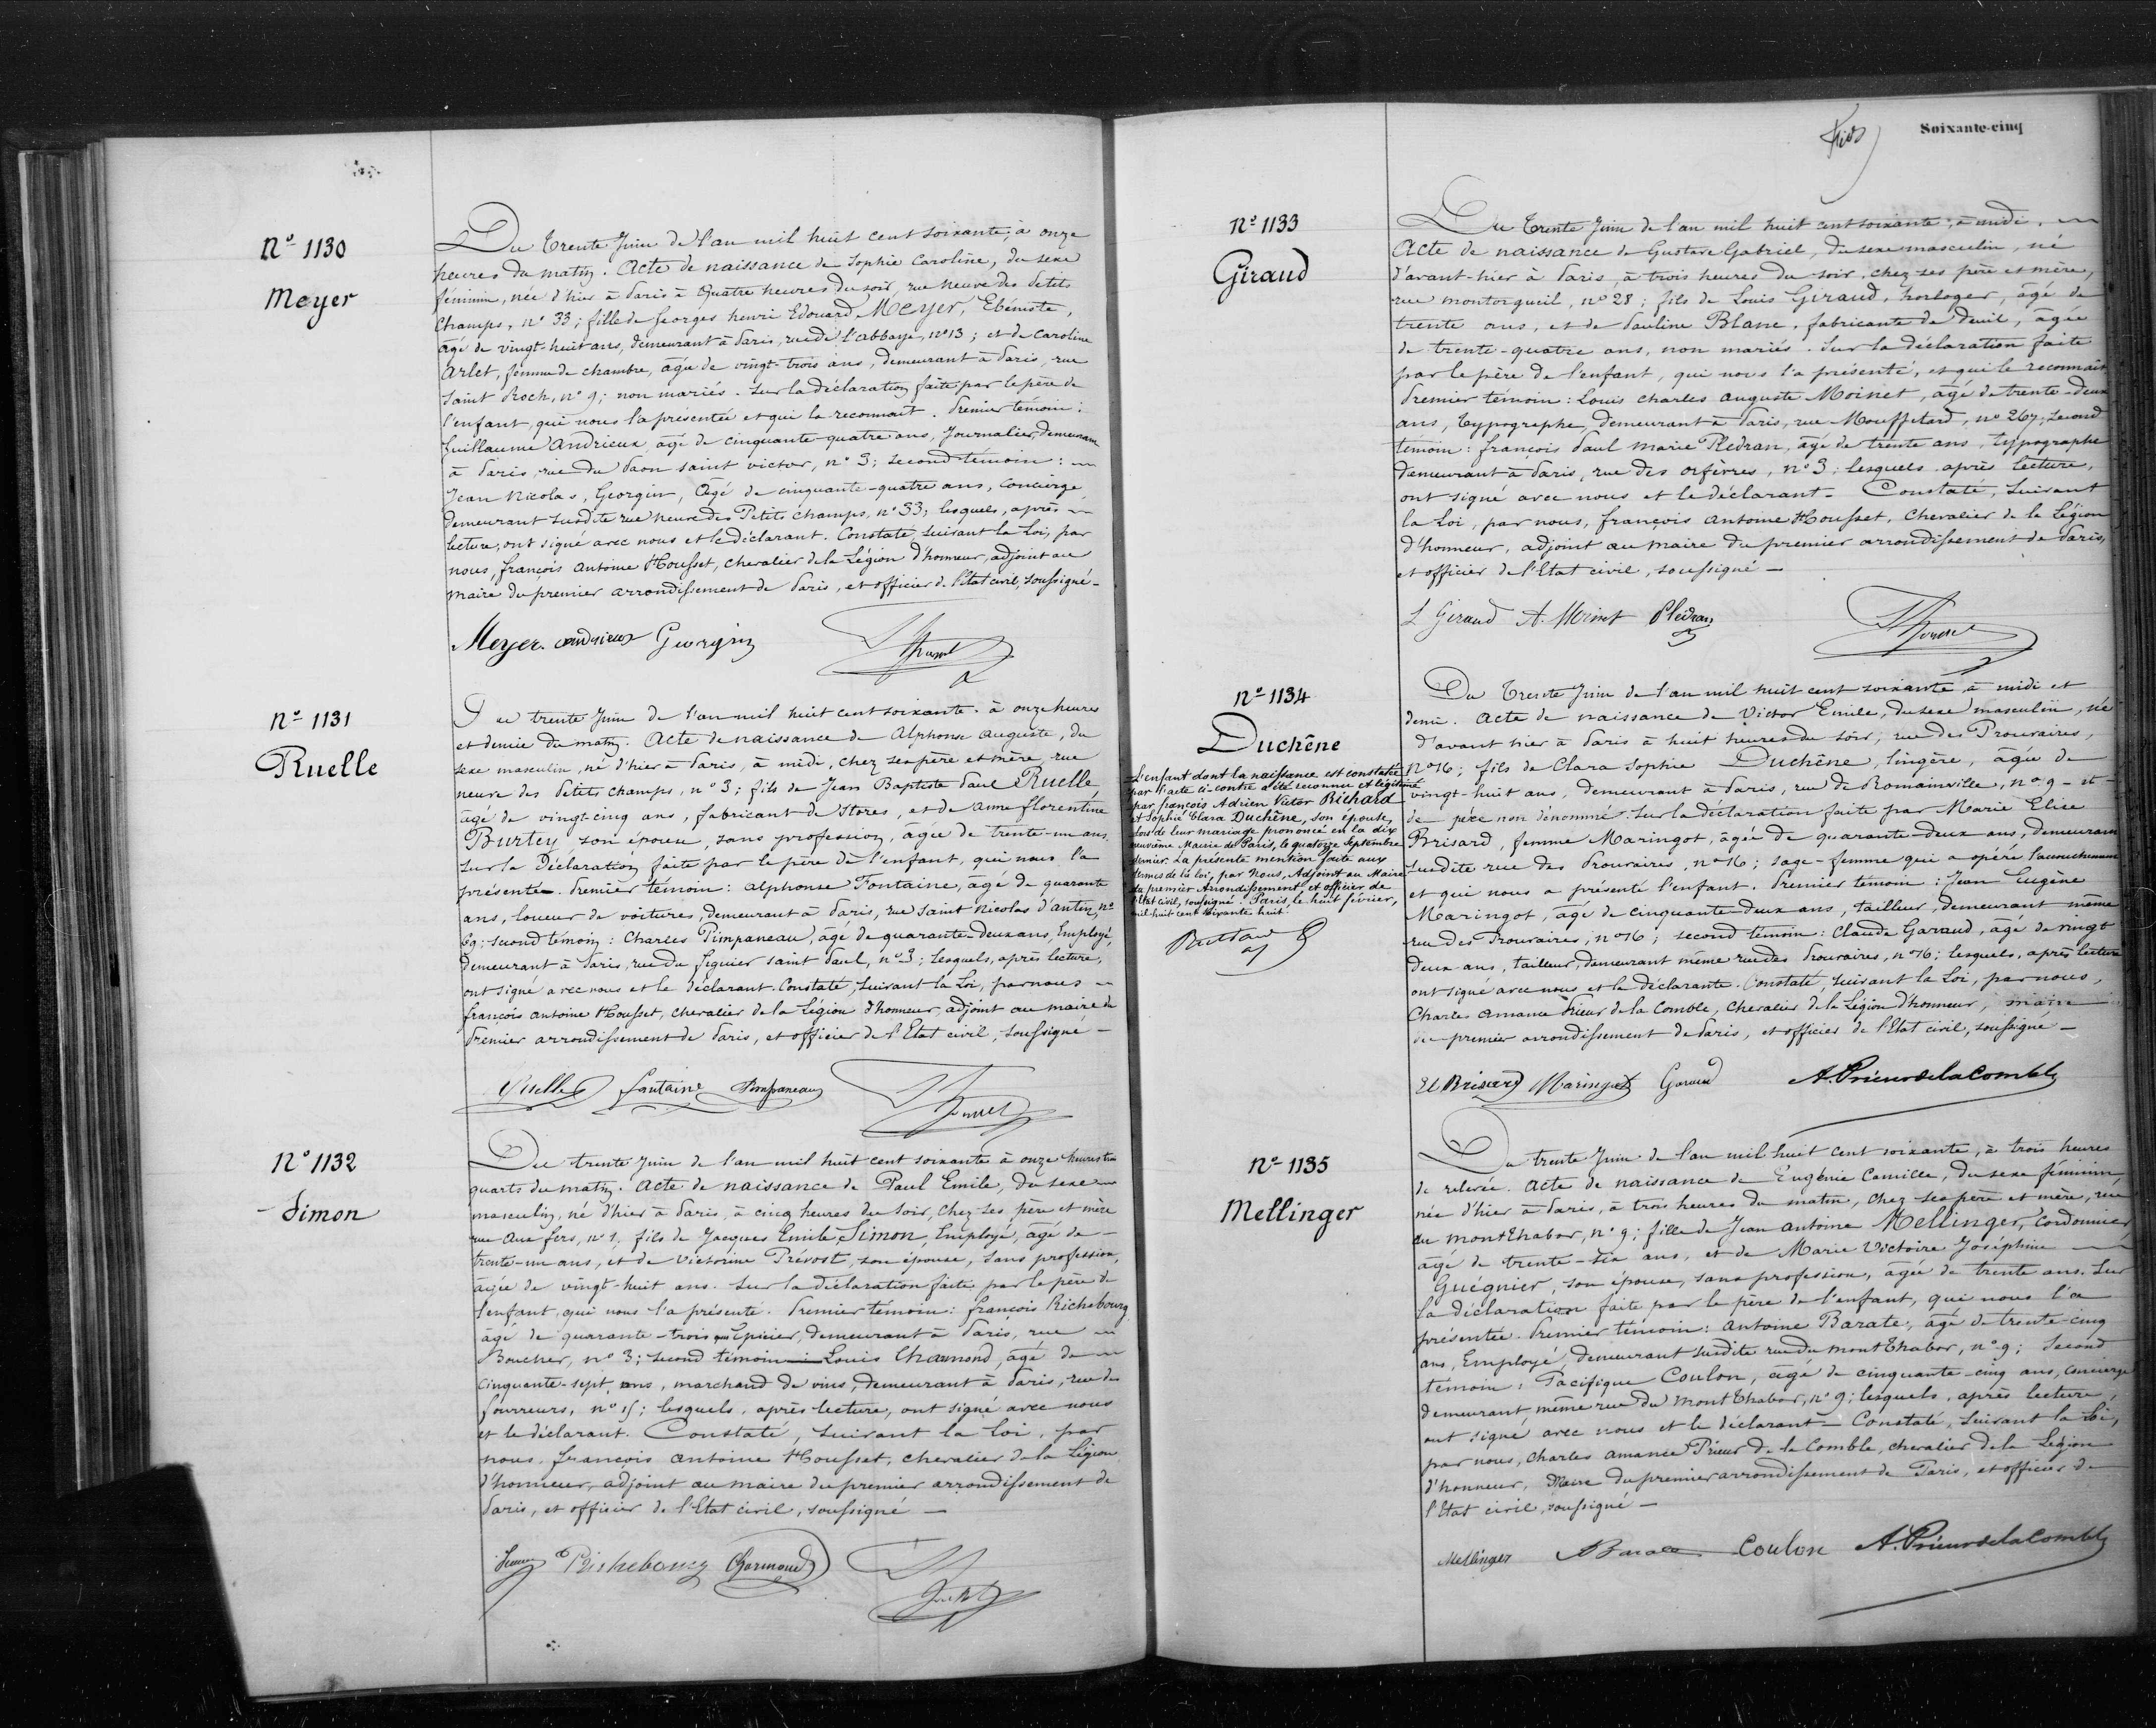 N° 1130
Meyer
Du Trente Juin de l'an mil huit cent soixante, à onze
heures du matin. Acte de naissance de Sophie Caroline, du sexe
féminin, née d'hier à Paris à Quatre heures du soir, rue neuve des Petits
Champs, n° 33; fille de Georges henri Edouard Meyer, Ebéniste,
âgé de vingt-huit ans, demeurant à Paris, rue de l'abbaye, n° 13; et de Caroline
Arlet, femme de chambre, âgée de vingt-trois ans, demeurant à Paris, rue
Saint Roch, n° 9; non mariés. Sur la déclaration faite par le père de
l'enfant, qui nous l'a présentée et qui la reconnaît. Premier témoin:
Guillaume Andrieux, âgé de cinquante-quatre ans, Journalier, demeurant
à Paris, rue du Paon saint victor, n° 3; second témoin:
Jean Nicolas, Georgin, Agé de cinquante-quatre ans, Concierge,
demeurant susdite rue neuve des Petits champs, n° 33; lesquels, après
lecture, ont signé avec nous et le déclarant. Constaté, suivant la Loi, par
nous, françois Antoine Housset, chevalier de la Légion d'honneur, adjoint au
maire du premier arrondissement de Paris, et officier de l'Etat civil, soussigné -
Meyer. andrieux Georgin
N° 1131
Ruelle
Du trente Juin de l'an mil huit cent soixante. à onze heures
et demie du matin. Acte de naissance de Alphonse Auguste, du
sexe masculin, né d'hier à Paris, à midi, chez ses père et mère, rue
neuve des Petits champs, n° 3; fils de Jean Baptiste Paul Ruelle,
âgé de vingt-cinq ans, fabricant de Stores, et de anne florentine
Burtey, son épouse, sans profession, âgée de trente-un ans.
Sur la Déclaration faite par le père de l'enfant, qui nous l'a
présenté. Premier témoin: alphonse Fontaine, âgé de quarante
ans, loueur de voitures, demeurant à Paris, rue saint Nicolas d'antin, n°
69; second témoin: Charles Pimpaneau, âgé de quarante-deux ans, Employé,
demeurant à Paris, rue du figuier saint Paul, n° 3; lesquels, après lecture,
ont signé avec nous et le déclarant. Constaté, suivant la Loi, par nous
françois antoine Housset, chevalier de la Légion d'honneur, adjoint au maire du
Premier arrondissement de Paris, et officier de l'Etat civil, soussigné -
Ruelle fontaine Pimpaneau
N° 1132
Simon
Du trente Juin de l'an mil huit cent soixante à onze heures trois
quarts du matin. Acte de naissance de Paul Emile, du sexe
masculin, né d'hier à Paris, à cinq heures du soir, chez ses père et mère
rue Aux fers, n° 1, fils de Jacques Emile Simon, Employé, âgé de
trente-un ans, et de Victorine Prévost, son épouse, sans profession,
âgée de vingt-huit ans. Sur la déclaration faite par le père de
l'enfant, qui nous l'a présenté. Premier témoin: françois Richebourg
âgé de quarante-trois ans Epicier, demeurant à Paris, rue
Boucher, n° 3; second témoin: Louis Charmond, âgé de
cinquante-sept ans, marchand de vins, demeurant à Paris, rue des
fourreurs, n° 15; lesquels, après lecture, ont signé avec nous
et le déclarant. Constaté, suivant la Loi, par
nous, françois Antoine Housset, chevalier de la Légion
d'honneur, adjoint au maire du premier arrondissement de
Paris, et officier de l'Etat civil, soussigné -
Simon Richebourg Charmond
Soixante-cinq
N° 1133
Giraud
Du Trente Juin de l'an mil huit cent soixante, à midi.
Acte de naissance de Gustave Gabriel, du sexe masculin, né
d'avant-hier à Paris, à trois heures du soir, chez ses père et mère,
rue montorgueil, n° 28; fils de Louis Giraud, horloger, âgé de
trente ans, et de Pauline Blanc, fabricante de deuil, âgée
de trente-quatre ans, non mariés. Sur la déclaration faite
par le père de l'enfant, qui nous l'a présenté, et qui le reconnait
Premier témoin: Louis charles auguste Moinet, âgé de trente-deux
ans, Typographe, demeurant à Paris, rue Mouffetard, n° 267; Second
témoin: françois Paul marie Pledran, âgé de trente ans, Typographe
demeurant à Paris, rue des orfèvres, n° 3; lesquels après lecture,
ont signé avec nous et le déclarant - Constaté, suivant
la Loi, par nous, françois Antoine Housset, Chevalier de la Légion
d'honneur, adjoint au maire du premier arrondissement de Paris,
et officier de l'Etat civil, soussigné -
L Giraud A. Moinet Pledran
N° 1134
Duchêne
L'enfant dont la naissance est constatée
par l'acte ci-contre a été reconnu et légitimé
par françois Adrien Victor Richard
et Sophie Clara Duchêne, son épouse,
lors de leur mariage prononcé en la dix
neuvième Mairie de Paris, le quatorze Septembre
dernier. La présente mention faite aux
termes de la loi, par Nous, Adjoint au Maire
du premier Arrondissement, et officier de
l'Etat civil, soussigné. Paris, le huit février,
mil huit cent soixante huit.
Du Trente Juin de l'an mil huit cent soixante, à midi et
demi. Acte de naissance de Victor Emile, du sexe masculin, né
d'avant hier à Paris à huit heures du soir, rue des Prouvaires,
n° 16; fils de Clara Sophie Duchêne, lingère, âgée de
vingt-huit ans, demeurant à Paris, rue de Romainville, n° 9 - et
de père non dénommé. Sur la déclaration faite par Marie Elise
Brisard, femme Maringot, âgée de quarante-deux ans, demeurant
susdite rue des Prouvaires, n° 16; sage-femme qui a opéré l'accouchement
et qui nous a présenté l'enfant. Premier témoin: Jean Eugène
Maringot, âgé de cinquante-deux ans, tailleur, demeurant même
rue des Prouvaires, n° 16; second témoin: Claude Garaud, âgé de vingt
deux ans, tailleur, demeurant même rue des Prouvaires, n° 16; lesquels, après lecture
ont signé avec nous et la déclarante. Constaté, suivant la Loi, par nous,
Charles Amance Prieur de la Comble, Chevalier de la Légion d'honneur, maire
du premier arrondissement de Paris, et officier de l'Etat civil, soussigné -
El Brisard Maringot Garaud A. Prieur de la Comble
N° 1135
Mellinger
Du trente Juin de l'an mil huit cent soixante, à trois heures
de relevée. Acte de naissance de Eugénie Camille, du sexe féminin,
née d'hier à Paris, à trois heures du matin, chez ses père et mère, rue
du mont Thabor, n° 9; fille de Jean antoine Mellinger, Cordonnier
âgé de trente-six ans, et de Marie Victoire Joséphine
Guégnier, son épouse, sans profession, âgée de trente ans. Sur
la déclaration faite par le père de l'enfant, qui nous l'a
présentée. Premier témoin: Antoine Barate, âgé de trente-cinq
ans, Employé, demeurant susdite rue du mont Thabor, n° 9; Second
témoin: Pacifique Coulon, âgé de cinquante-cinq ans, concierge
demeurant même rue du mont Thabor, n° 9; lesquels, après lecture,
ont signé avec nous et le déclarant - Constaté, suivant la Loi,
par nous, Charles amance Prieur de la Comble, chevalier de la Légion
d'honneur, Maire du premier arrondissement de Paris, et officier de
l'Etat civil, soussigné -
Mellinger Barate Coulon A. Prieur de la Comble